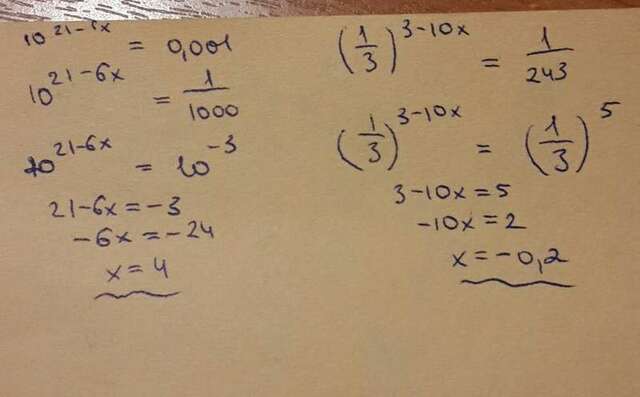 10^(21-6x) = 0,001
10^(21-6x) = 1/1000
10^(21-6x) = 10^(-3)
21-6x = -3
-6x = -24
x = 4
(1/3)^(3-10x) = 1/243
(1/3)^(3-10x) = (1/3)^5
3-10x = 5
-10x = 2
x = -0,2